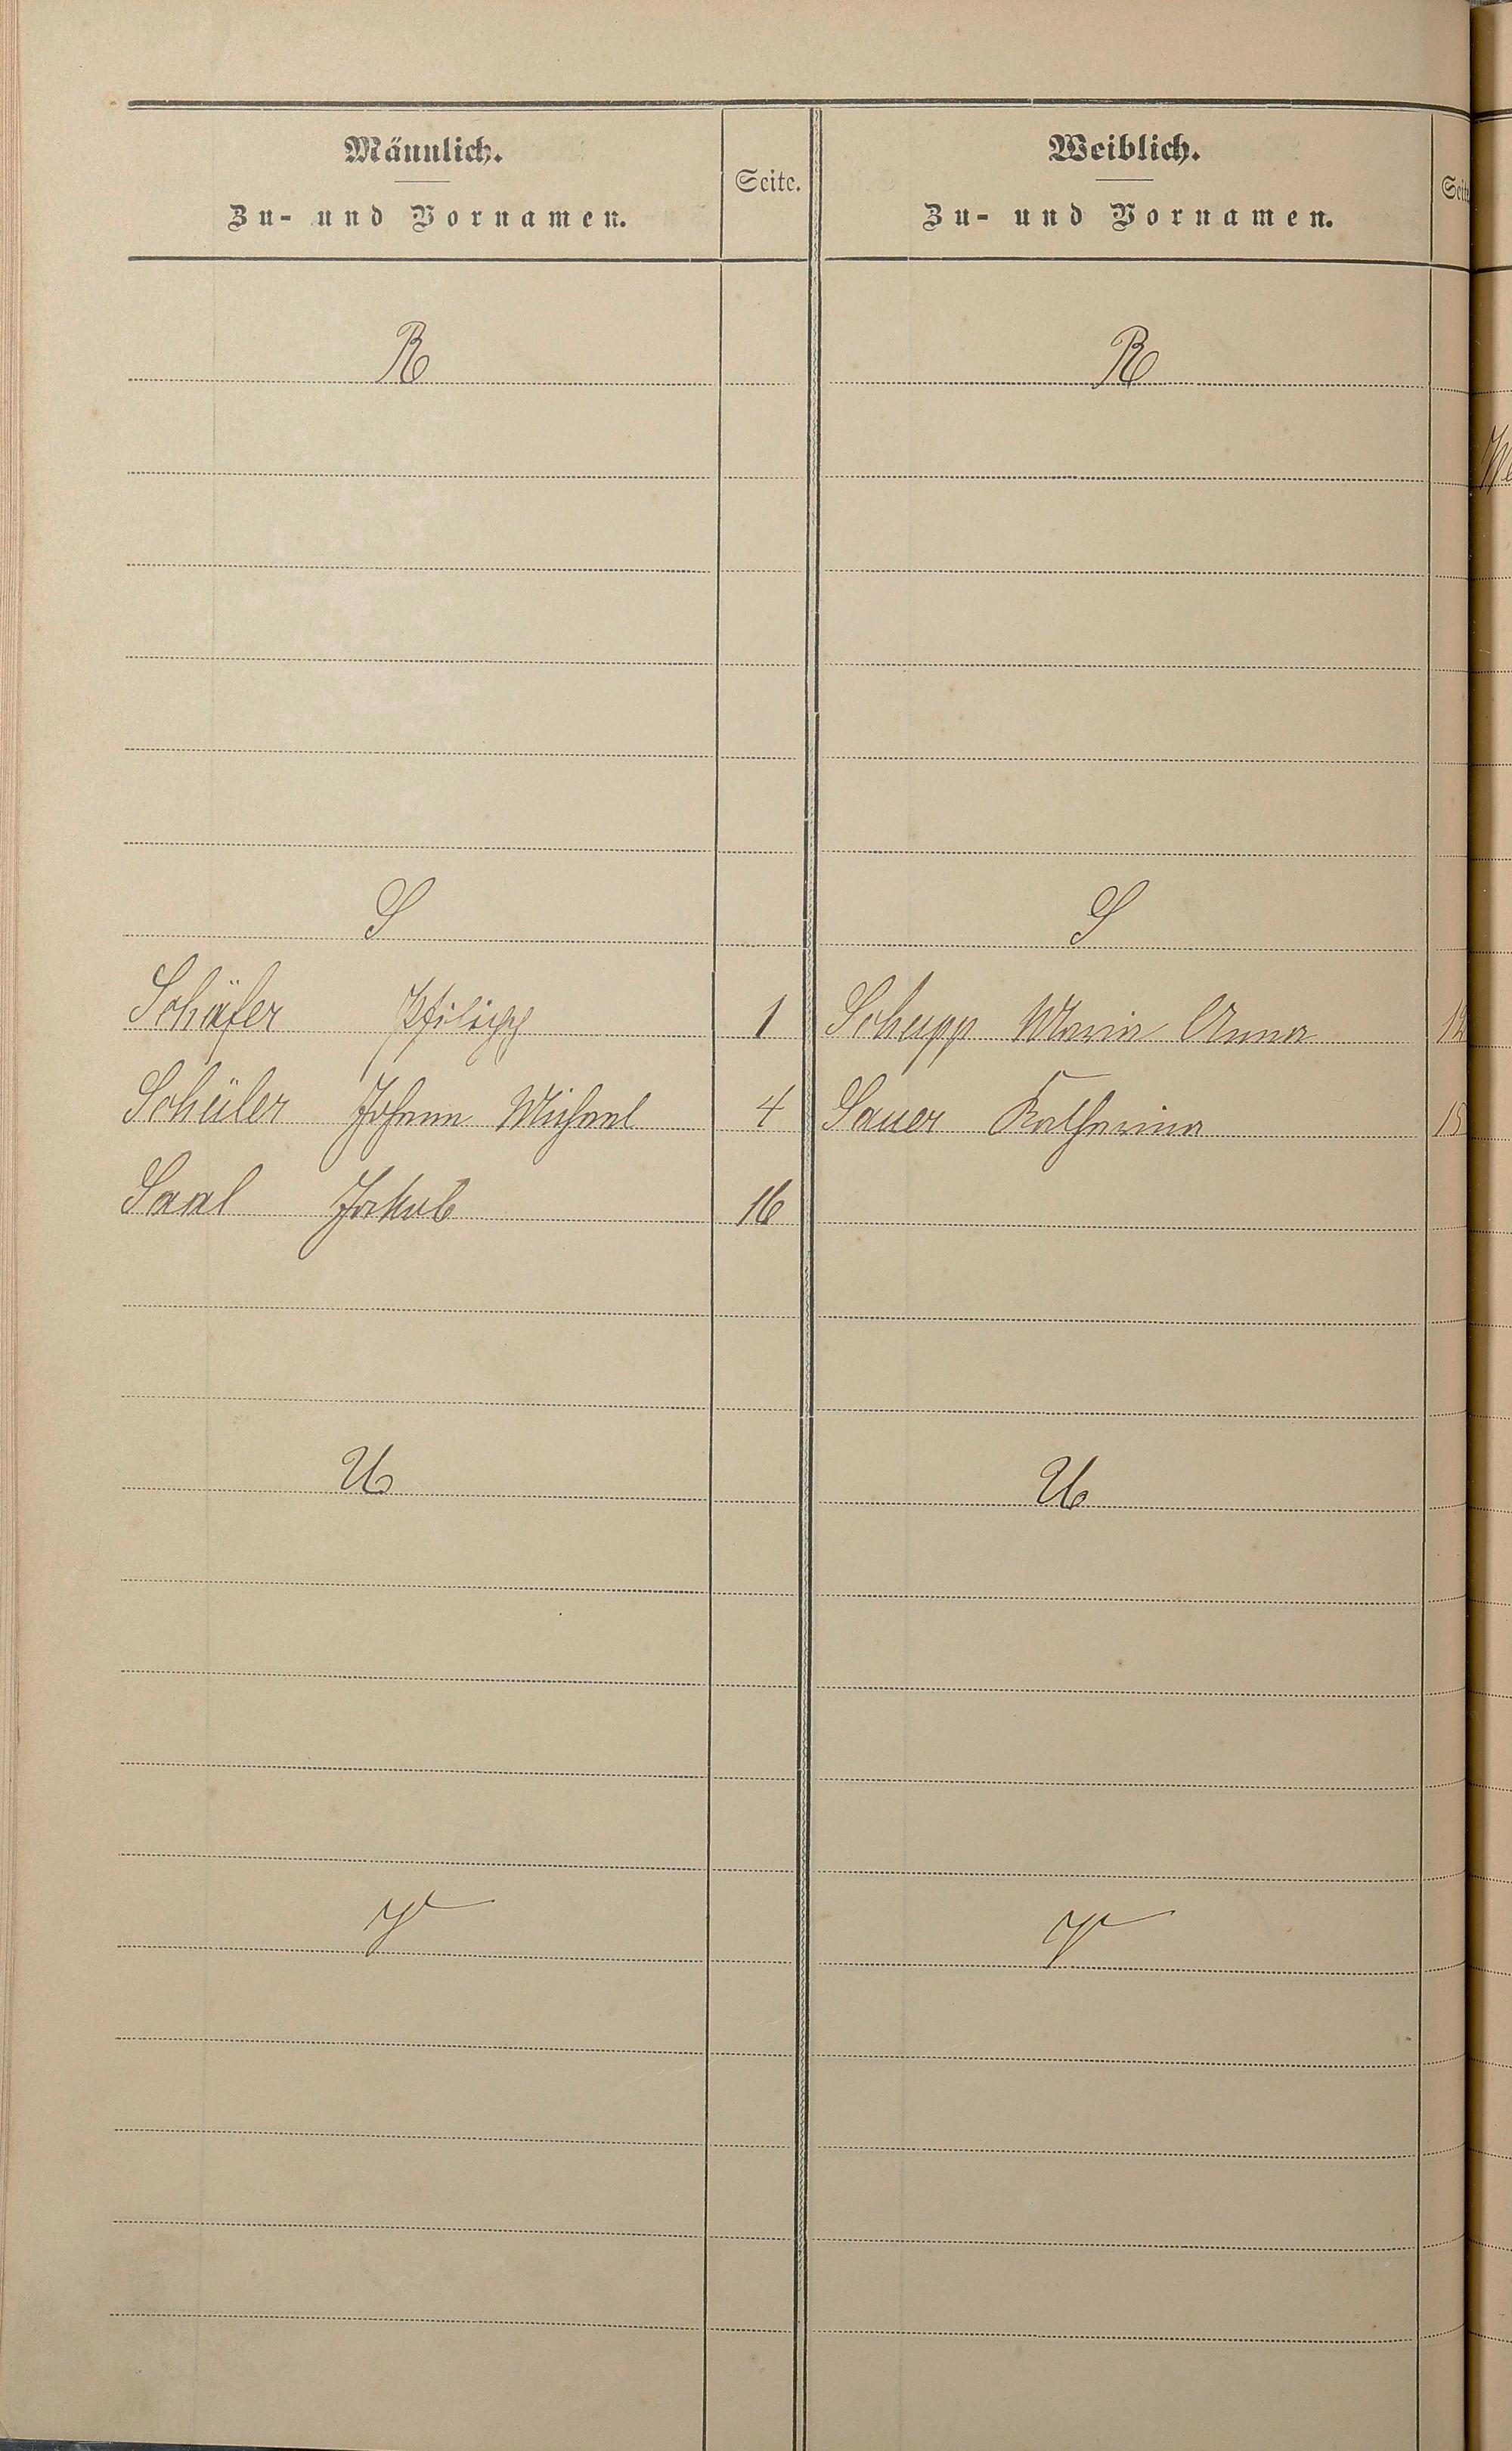 Männlich.
Zu- und Vornamen.
Seite.
Weiblich.
Zu- und Vornamen.
R
R
S
S
Schäfer Philipp 1
Schupp Maria Anna 12
Schüler Johann Michael 4
Sauer Katharina 15
Saal Jakob 16
U
U